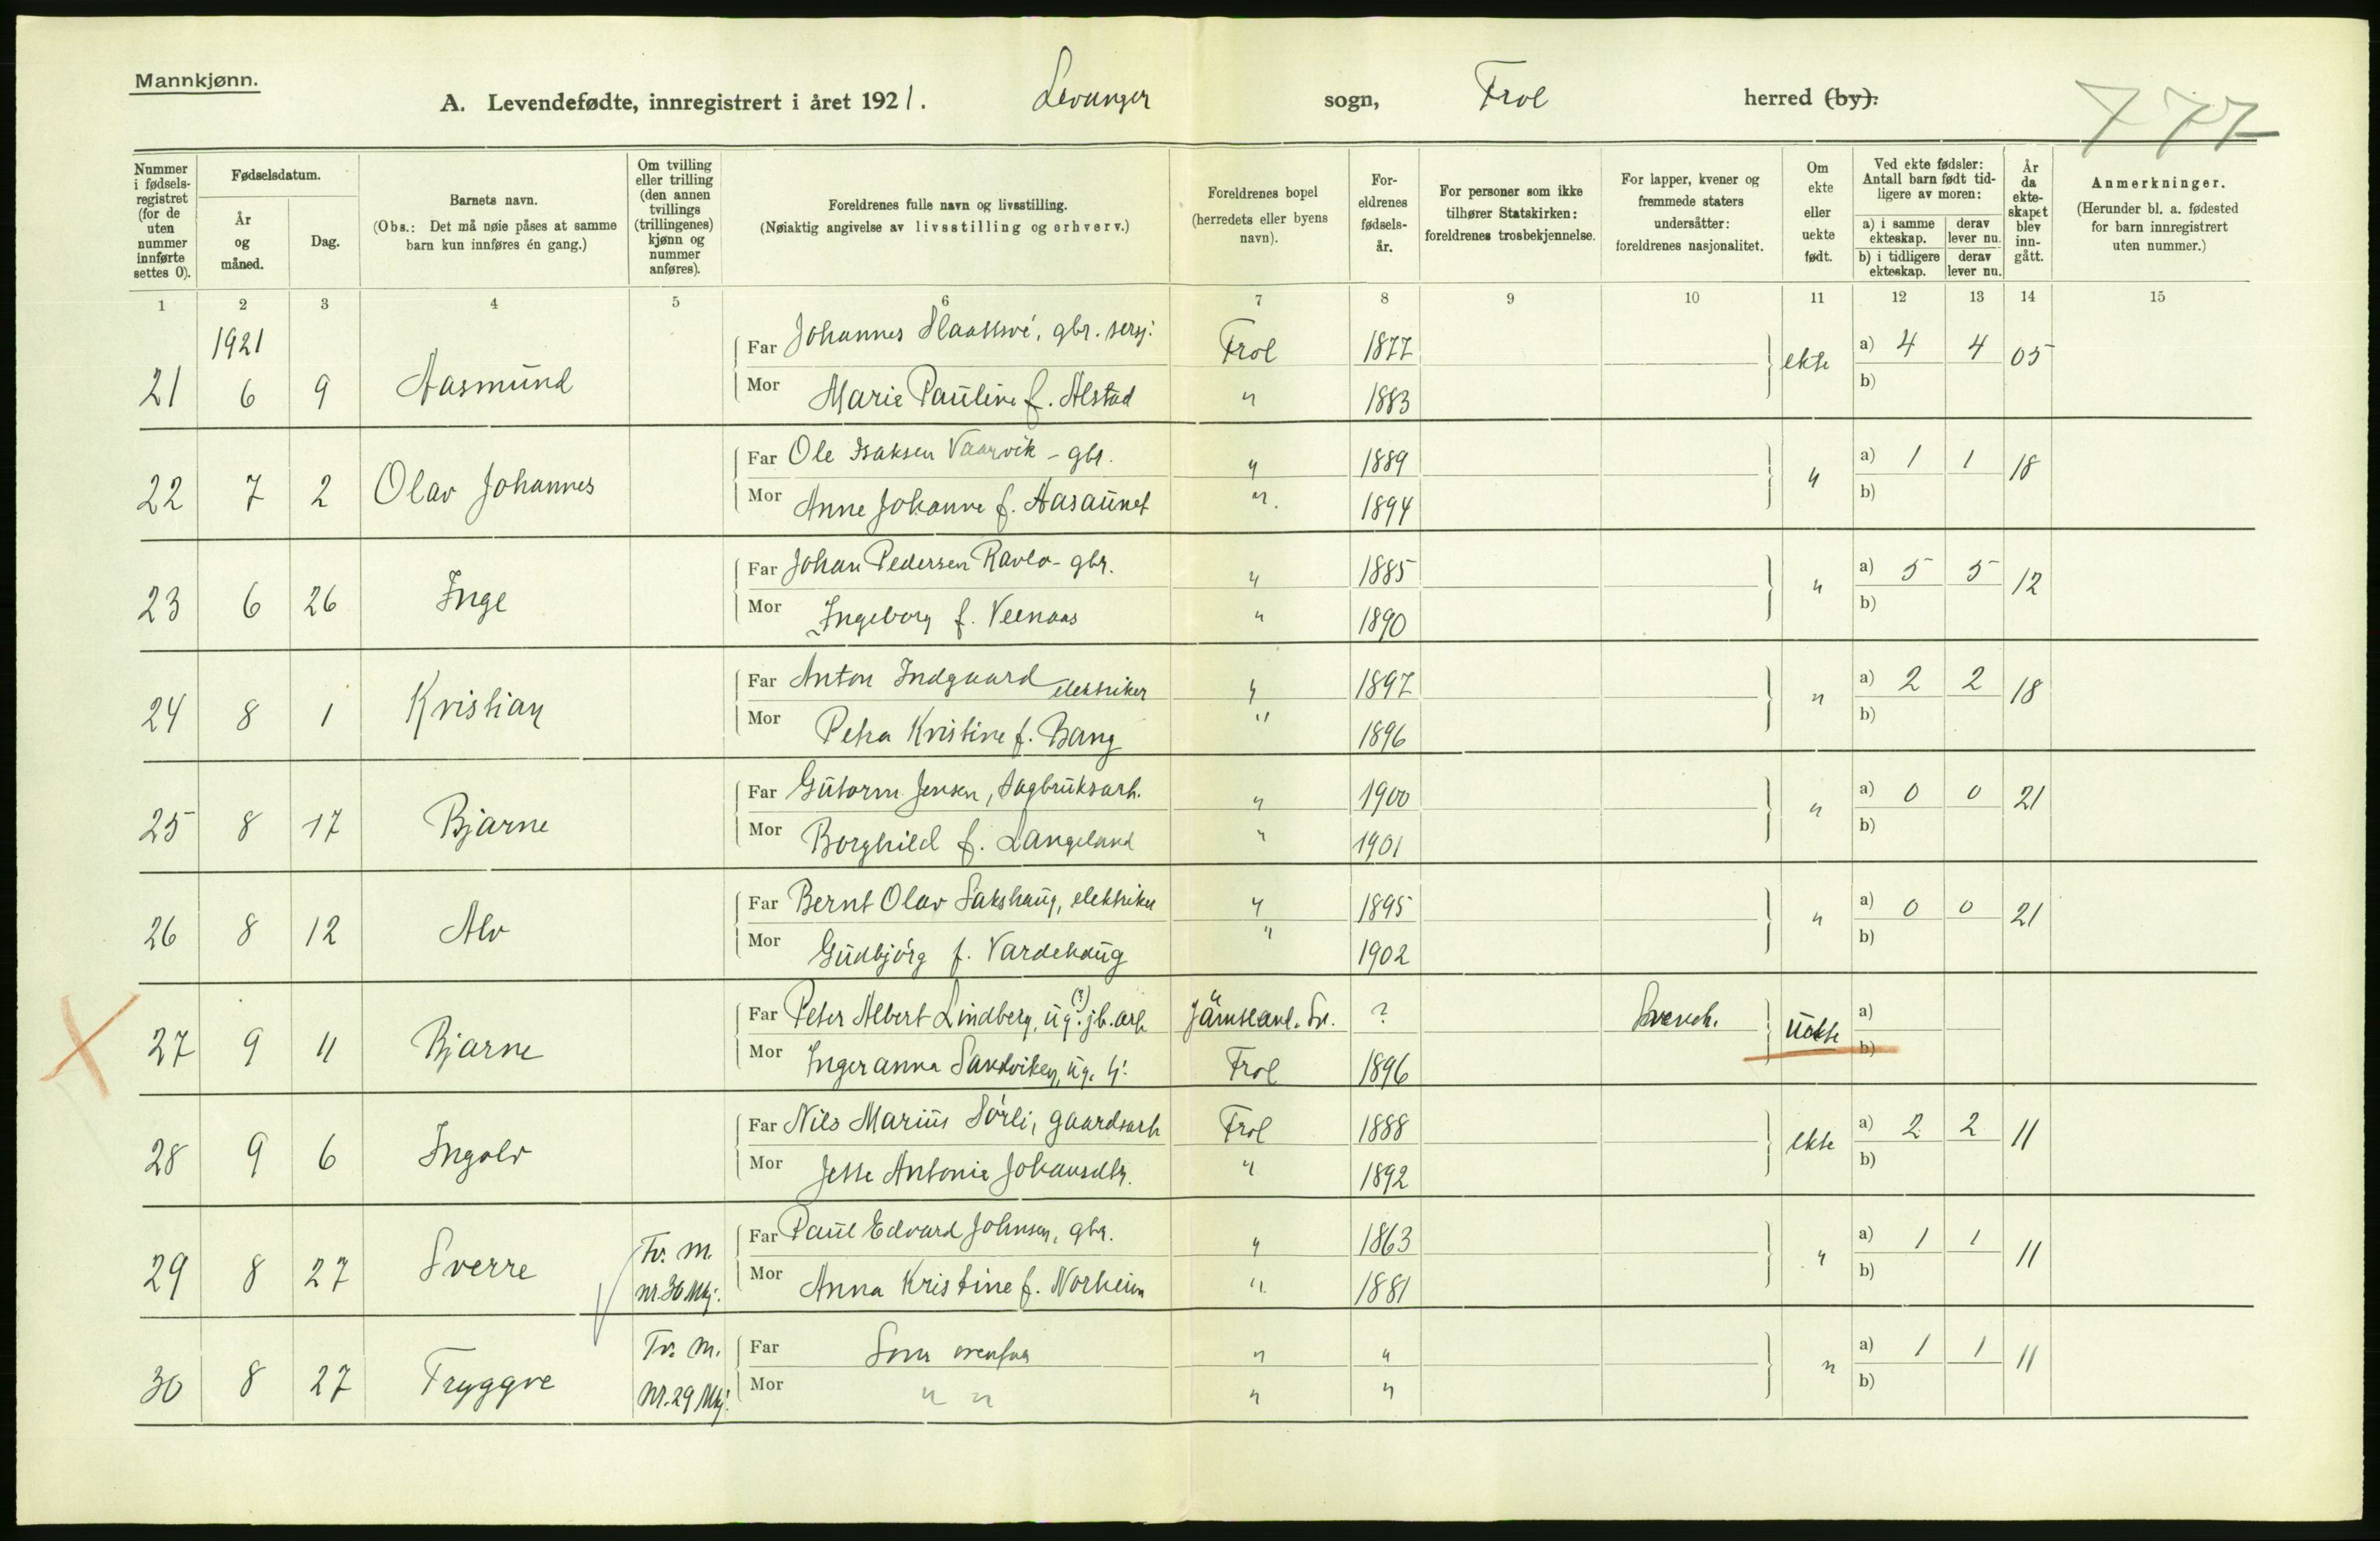 Mannkjønn.
A. Levendefødte, innregistrert i året 1921. Levanger sogn, Frol herred (by).
777
Nummer i fødsels-registret (for de uten nummer innførte settes 0).
Fødselsdatum.
År og måned.
Dag.
Barnets navn.
(Obs.: Det må nøie påses at samme barn kun innføres én gang.)
Om tvilling eller trilling (den annen tvillings (trillingenes) kjønn og nummer anføres).
Foreldrenes fulle navn og livsstilling.
(Nøiaktig angivelse av livsstilling og erhverv.)
Foreldrenes bopel (herredets eller byens navn).
For-eldrenes fødsels-år.
For personer som ikke tilhører Statskirken: foreldrenes trosbekjennelse.
For lapper, kvener og fremmede staters undersåtter: foreldrenes nasjonalitet.
Om ekte eller uekte født.
Ved ekte fødsler: Antall barn født tid-ligere av moren:
a) i samme ekteskap. derav lever nu.
b) i tidligere ekteskap. derav lever nu.
År da ekte-skapet blev inn-gått.
Anmerkninger.
(Herunder bl. a. fødested for barn innregistrert uten nummer.)
1 2 3 4 5 6 7 8 9 10 11 12 13 14 15
1921
Far Johannes gbr. Frol 1877 ekte a) 4 4 05
21 6 9 Aasmund Mor Marie Pauline f. Alstad " 1883 b)
Far Ole Isaksen Vaarvik - gbr. " 1889 " a) 1 1 18
22 7 2 Olav Johannes Mor Anne Johanne f. Aasaunet " 1894 b)
Far Johan Pedersen Ravlo - gbr. " 1885 " a) 5 5 12
23 6 26 Inge Mor Ingeborg f. Veenaas " 1890 b)
Far Anton Indgaard elektriker " 1897 " a) 2 2 18
24 8 1 Kristian Mor Petra Kristine f. Bang " 1896 b)
Far Gutorm Jensen, sagbruksarb. " 1900 " a) 0 0 21
25 8 17 Bjarne Mor Borghild f. Langeland " 1901 b)
Far Bernt Olav Sakshaug, elektriker " 1895 " a) 0 0 21
26 8 12 Alv Mor Gudbjørg f. Vardehaug " 1902 b)
Far Peter Albert Lindberg, ug. (?) jb. arb. Jämtland. Sv. ? Svensk. uekte a)
27 9 11 Bjarne Mor Ingeranna Sandviken, ug. Frol 1896 b)
Far Nils Marius Sørli, gaardsarb Frol 1888 ekte a) 2 2 11
28 9 6 Ingolv Mor Jette Antonie Johansdtr. " 1892 b)
Tv. M. Far Paul Edvard Johnsen, gbr. " 1863 " a) 1 1 11
29 8 27 Sverre nr. 30 Mkj. Mor Anna Kristine f. Norheim " 1881 b)
Tv. M. Far Som ovenfor " " " a) 1 1 11
30 8 27 Tryggve Nr. 29 Mkj. Mor " " " " b)